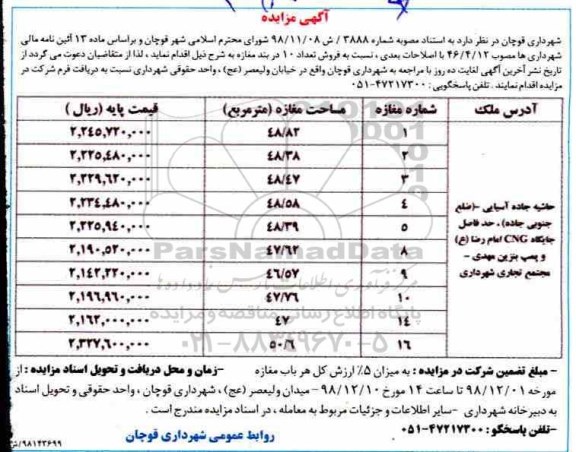 آگهی مزایده
شهرداری قوچان در نظر دارد به استناد مصوبه شماره ۳۸۸۸ / ش ۹۸/۱۱/۰۸ شورای محترم اسلامی شهر قوچان و براساس ماده ۱۳ آئین نامه مالی
شهرداری ها مصوب ۴۶/۴/۱۲ با اصلاحات بعدی ، نسبت به فروش تعداد ۱۰ در بند مغازه به شرح ذیل اقدام نماید ، لذا از متقاضیان دعوت می گردد از
تاریخ نشر آخرین آگهی لغایت ده روز با مراجعه به شهرداری قوچان واقع در خیابان ولیعصر (عج) ، واحد حقوقی شهرداری نسبت به دریافت فرم شرکت در
مزایده اقدام نمایند . تلفن پاسخگویی : ۴۷۲۱۷۳۰۰-۰۵۱
آدرس ملک شماره مغازه مساحت مغازه (مترمربع) قیمت پایه (ریال)
حاشیه جاده آسیایی -(ضلع
جنوبی جاده) ، حد فاصل
جایگاه CNG امام رضا (ع)
و پمپ بنزین مهدی -
مجتمع تجاری شهرداری
۱ ۴۸/۸۲ ۲,۲۴۵,۷۲۰,۰۰۰
۲ ۴۸/۳۸ ۲,۲۲۵,۴۸۰,۰۰۰
۳ ۴۸/۴۷ ۲,۲۲۹,۶۲۰,۰۰۰
۴ ۴۸/۵۸ ۲,۲۳۴,۴۸۰,۰۰۰
۵ ۴۸/۳۹ ۲,۲۲۵,۹۴۰,۰۰۰
۸ ۴۷/۶۲ ۲,۱۹۰,۵۲۰,۰۰۰
۹ ۴۶/۵۷ ۲,۱۴۲,۲۲۰,۰۰۰
۱۰ ۴۷/۷۶ ۲,۱۹۶,۹۶۰,۰۰۰
۱۴ ۴۷ ۲,۱۶۲,۰۰۰,۰۰۰
۱۶ ۵۰/۶ ۲,۳۲۷,۶۰۰,۰۰۰
ParsNamadData
پایگاه اطلاع رسانی مناقصه و مزایده
۰۲۱-۸۸۳۴۹۶۷۰-۵
- مبلغ تضمین شرکت در مزایده : به میزان ۵٪ ارزش کل هر باب مغازه -زمان و محل دریافت و تحویل اسناد مزایده : از
مورخه ۹۸/۱۲/۰۱ تا ساعت ۱۴ مورخ ۹۸/۱۲/۱۰ - میدان ولیعصر (عج) ، شهرداری قوچان ، واحد حقوقی و تحویل اسناد
به دبیرخانه شهرداری -سایر اطلاعات و جزئیات مربوط به معامله ، در اسناد مزایده مندرج است .
-تلفن پاسخگو : ۴۷۲۱۷۳۰۰-۰۵۱
روابط عمومی شهرداری قوچان
۹۸۱۴۳۶۹۹/ش